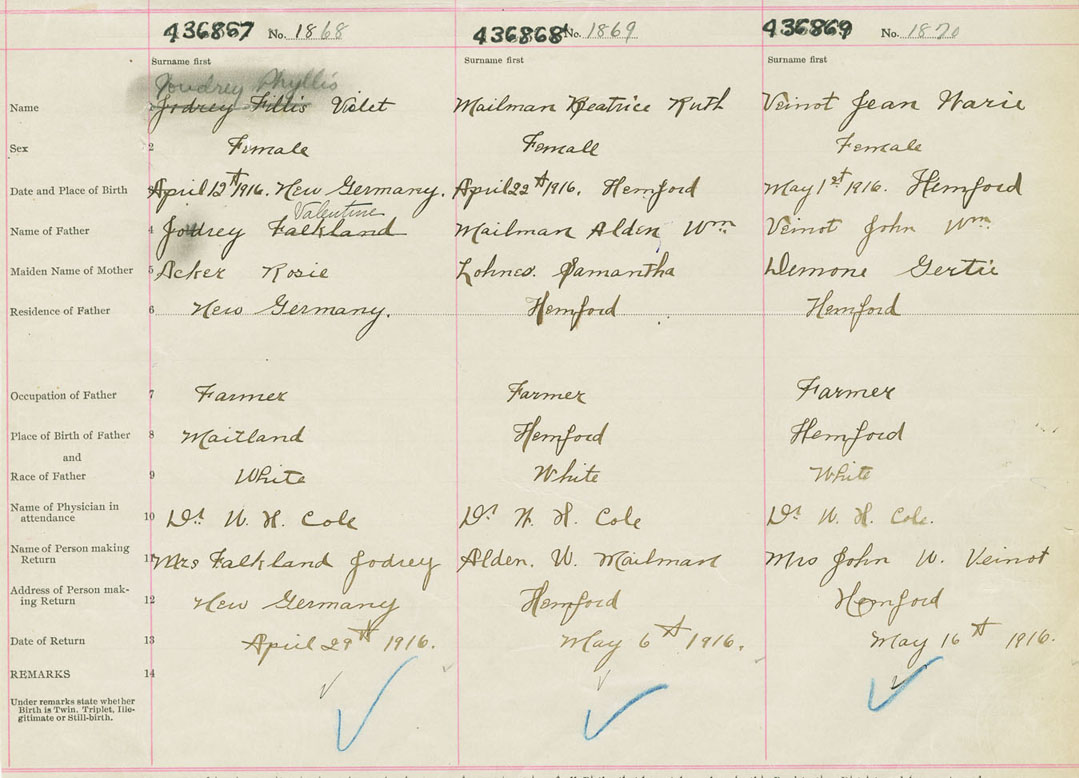 436867 No. 1868 436868 No. 1869 436869 No. 1870
Surname first Surname first Surname first
Joudrey Phyllis
Name Jodrey Fillis Valet Mailman Beatrice Ruth Veinot Jean Marie
Sex 2 Female Female Female
Date and Place of Birth April 12th 1916. New Germany. April 22th 1916. Hemford May 1st 1916. Hemford
Valentine
Name of Father 4 Jodrey Falkland Mailman Alden Wm Veinot John Wm
Maiden Name of Mother 5 Acker Rosie Lohnes. Samantha Demone Gertie
Residence of Father 6 New Germany. Hemford Hemford
Occupation of Father 7 Farmer Farmer Farmer
Place of Birth of Father 8 Maitland Hemford Hemford
and
Race of Father 9 White White White
Name of Physician in
attendance 10 Dr W. H. Cole Dr W. H. Cole Dr W. H. Cole.
Name of Person making
Return 11 Mrs Falkland Jodrey Alden. W. Mailman Mrs John W. Veinot
Address of Person mak-
ing Return 12 New Germany Hemford Hemford
Date of Return 13 April 29th 1916. May 6th 1916. May 16th 1916.
REMARKS 14
Under remarks state whether
Birth is Twin, Triplet, Ille-
gitimate or Still-birth.